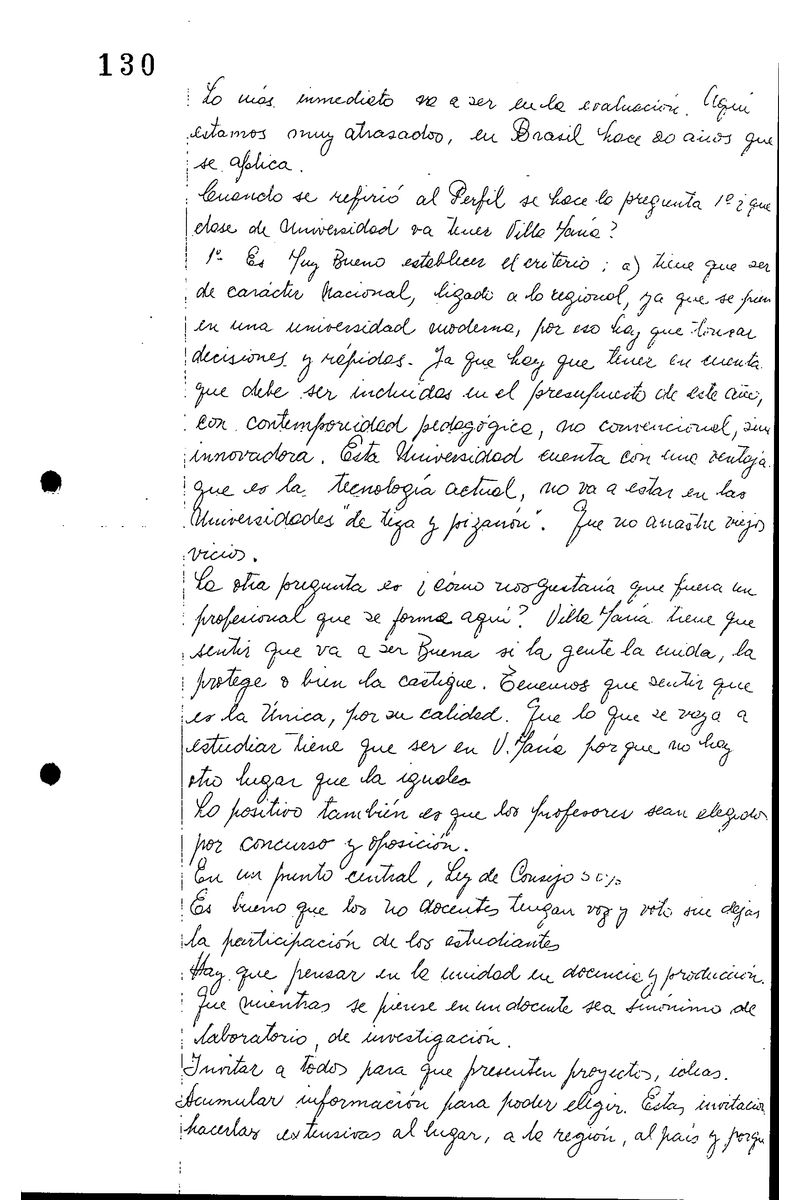 130
Lo más inmediato va a ser en la evaluación. Aquí
estamos muy atrasados, en Brasil hace 20 años que
se aplica.
Cuando se refirió al Perfil se hace la pregunta 1º ¿que
clase de Universidad va tener Villa María?
1º Es Muy Bueno establecer el criterio; a) tiene que ser
de carácter Nacional, ligado a lo regional, ya que se
en una universidad moderna, por eso hay que tomar
decisiones y rápidas. Ya que hay que tener en cuenta
que debe ser incluidas en el presupuesto de este año,
con contemporeidad pedagógica, no convencional, sino
innovadora. Esta Universidad cuenta con una ventaja
que es la tecnología actual, no va a estar en las
Universidades "de tiza y pizarrón". Que no arrastre viejos
vicios.
La otra pregunta es ¿cómo nos gustaría que fuera un
profesional que se forma aquí? Villa María tiene que
sentir que va a ser Buena si la gente la cuida, la
protege o bien la castigue. Tenemos que sentir que
es la Única, por su calidad. Que lo que se vaya a
estudiar tiene que ser en V. María porque no hay
otro lugar que la iguales
Lo positivo también es que los profesores sean elegidos
por concurso y oposición.
En un punto central, Ley de Consejo 50%
Es bueno que los no docentes tengan voz y voto sin dejar
la participación de los estudiantes
Hay que pensar en la unidad en docencia y producción.
Que mientras se piense en un docente sea sinónimo de
laboratorio, de investigación.
Invitar a todos para que presenten proyectos, ideas.
Acumular información para poder elegir. Estas invitacion
hacerlas extensivas al lugar, a la región, al país y porqu